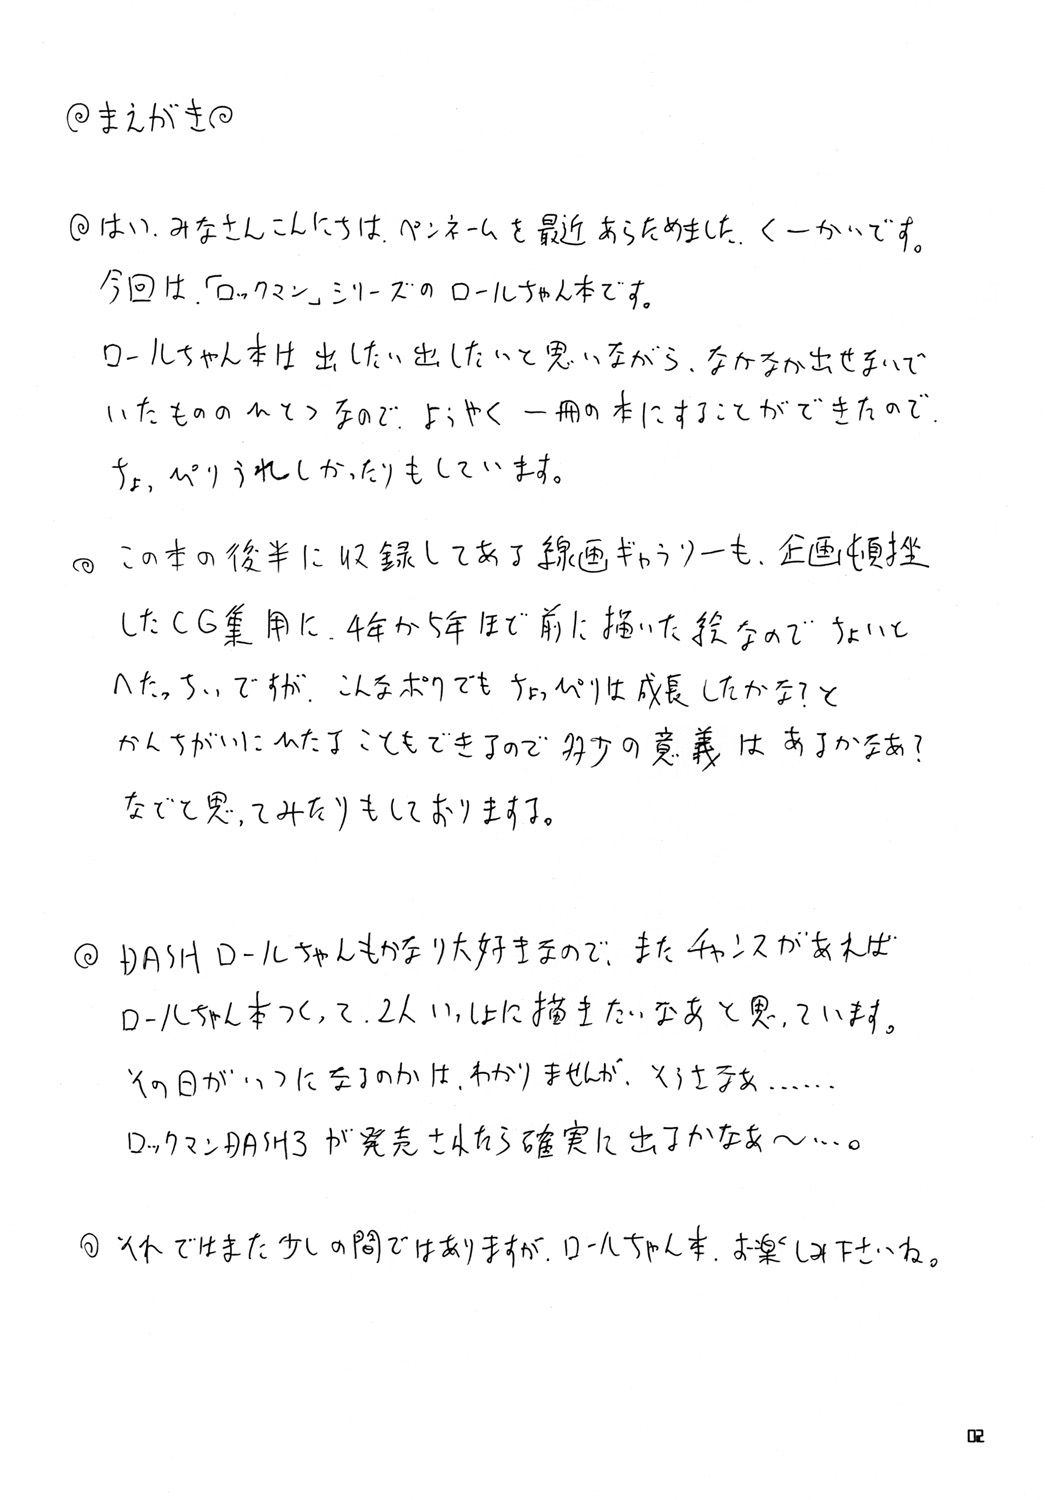 まえがき
はい、みなさんこんにちは、ペンネームを最近あらためました、くーかいです。
今回は、「ロックマン」シリーズのロールちゃん本です。
ロールちゃん本は出したい出したいと思いながら、なかなか出せないで
いたもののひとつなので、ようやく一冊の本にすることができたので、
ちょっぴりうれしかったりもしています。
この本の後半に収録してある線画ギャラリーも、企画頓挫
したCG集用に、4年から5年ほど前に描いた絵なのでちょいと
へたっちぃですが、こんなボクでもちょっぴりは成長したかな?と
かんちがいにひたることもできるので多少の意義はあるかなあ?
などと思ってみたりもしておりまする。
DASHロールちゃんもかなり大好きなので、またチャンスがあれば
ロールちゃん本つくって、2人いっしょに描きたいなあと思っています。
その日がいつになるのかは、わかりませんが、そうさなあ......
ロックマンDASH3が発売されたら確実に出るかなあ〜...。
それではまた少しの間ではありますが、ロールちゃん本、お楽しみ下さいね。
02